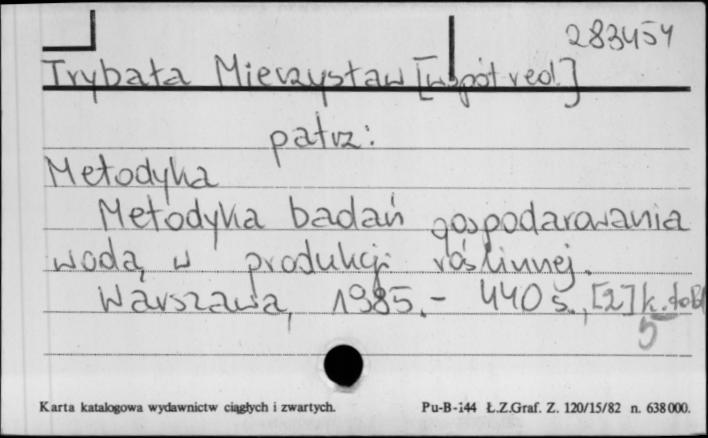 283454
Trybała Mieczysław [współred.]
patrz:
Metodyka
Metodyka badań gospodarowania
wodą w produkcji roślinnej.
Warszawa, 1985.- 440 s., [2] k. tabl
5
Karta katalogowa wydawnictw ciągłych i zwartych. Pu-B-144 Ł.Z.Graf. Z. 120/15/82 n. 638 000.